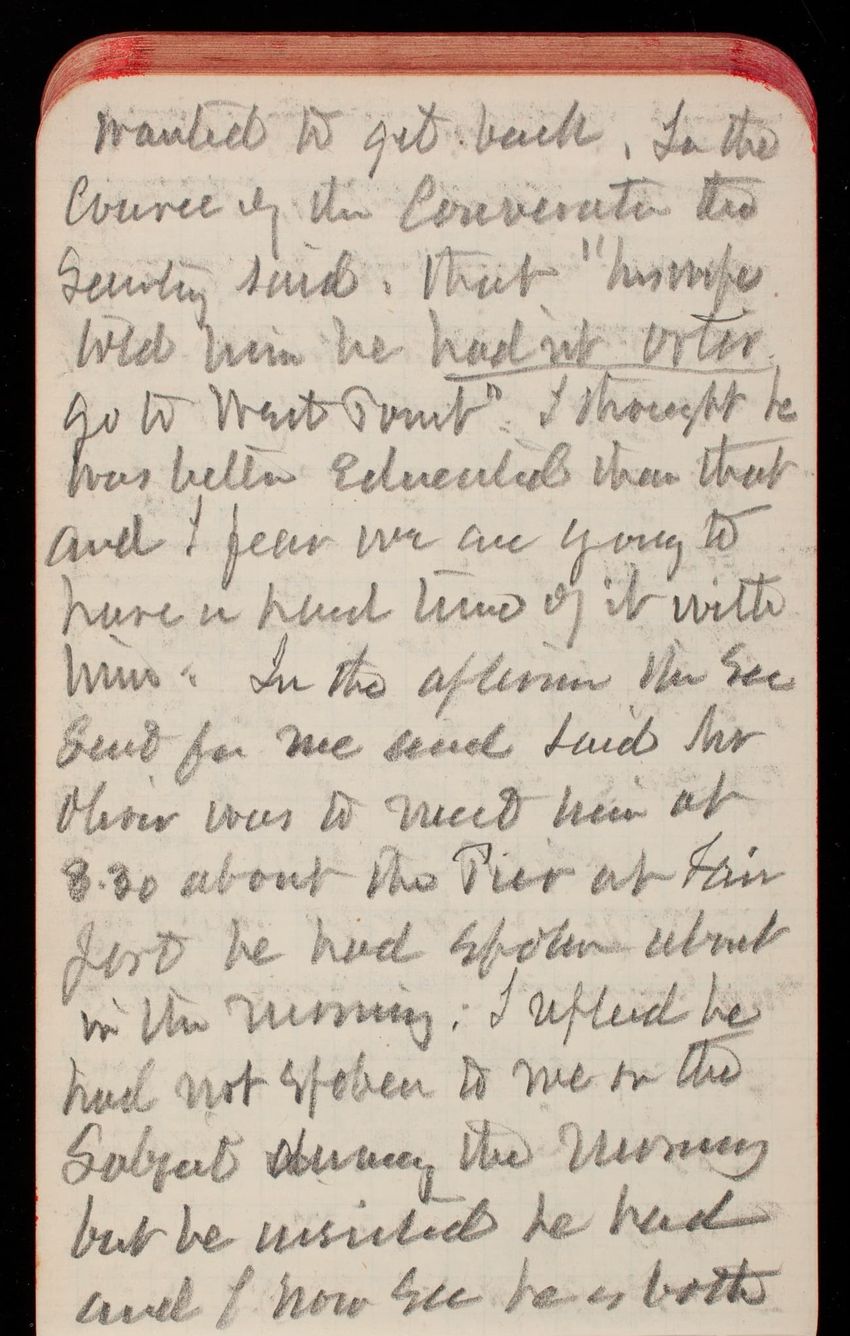 wanted to get back. In the
Course of the Conversation the
Secretary said: that "his wife
told him he hadn't orter
go to West Point". I thought he
was better Educated than that
and I fear we are going to
have a hard time of it with
him. In the afternoon the Sec
Send for me and said Mr
Oliver was to meet him at
3.30 about the Pier at Fair
Port he had spoken about
in the morning: I replied he
had not spoken to me on the
Subject during the morning
but he insisted he had
and I now see he is both